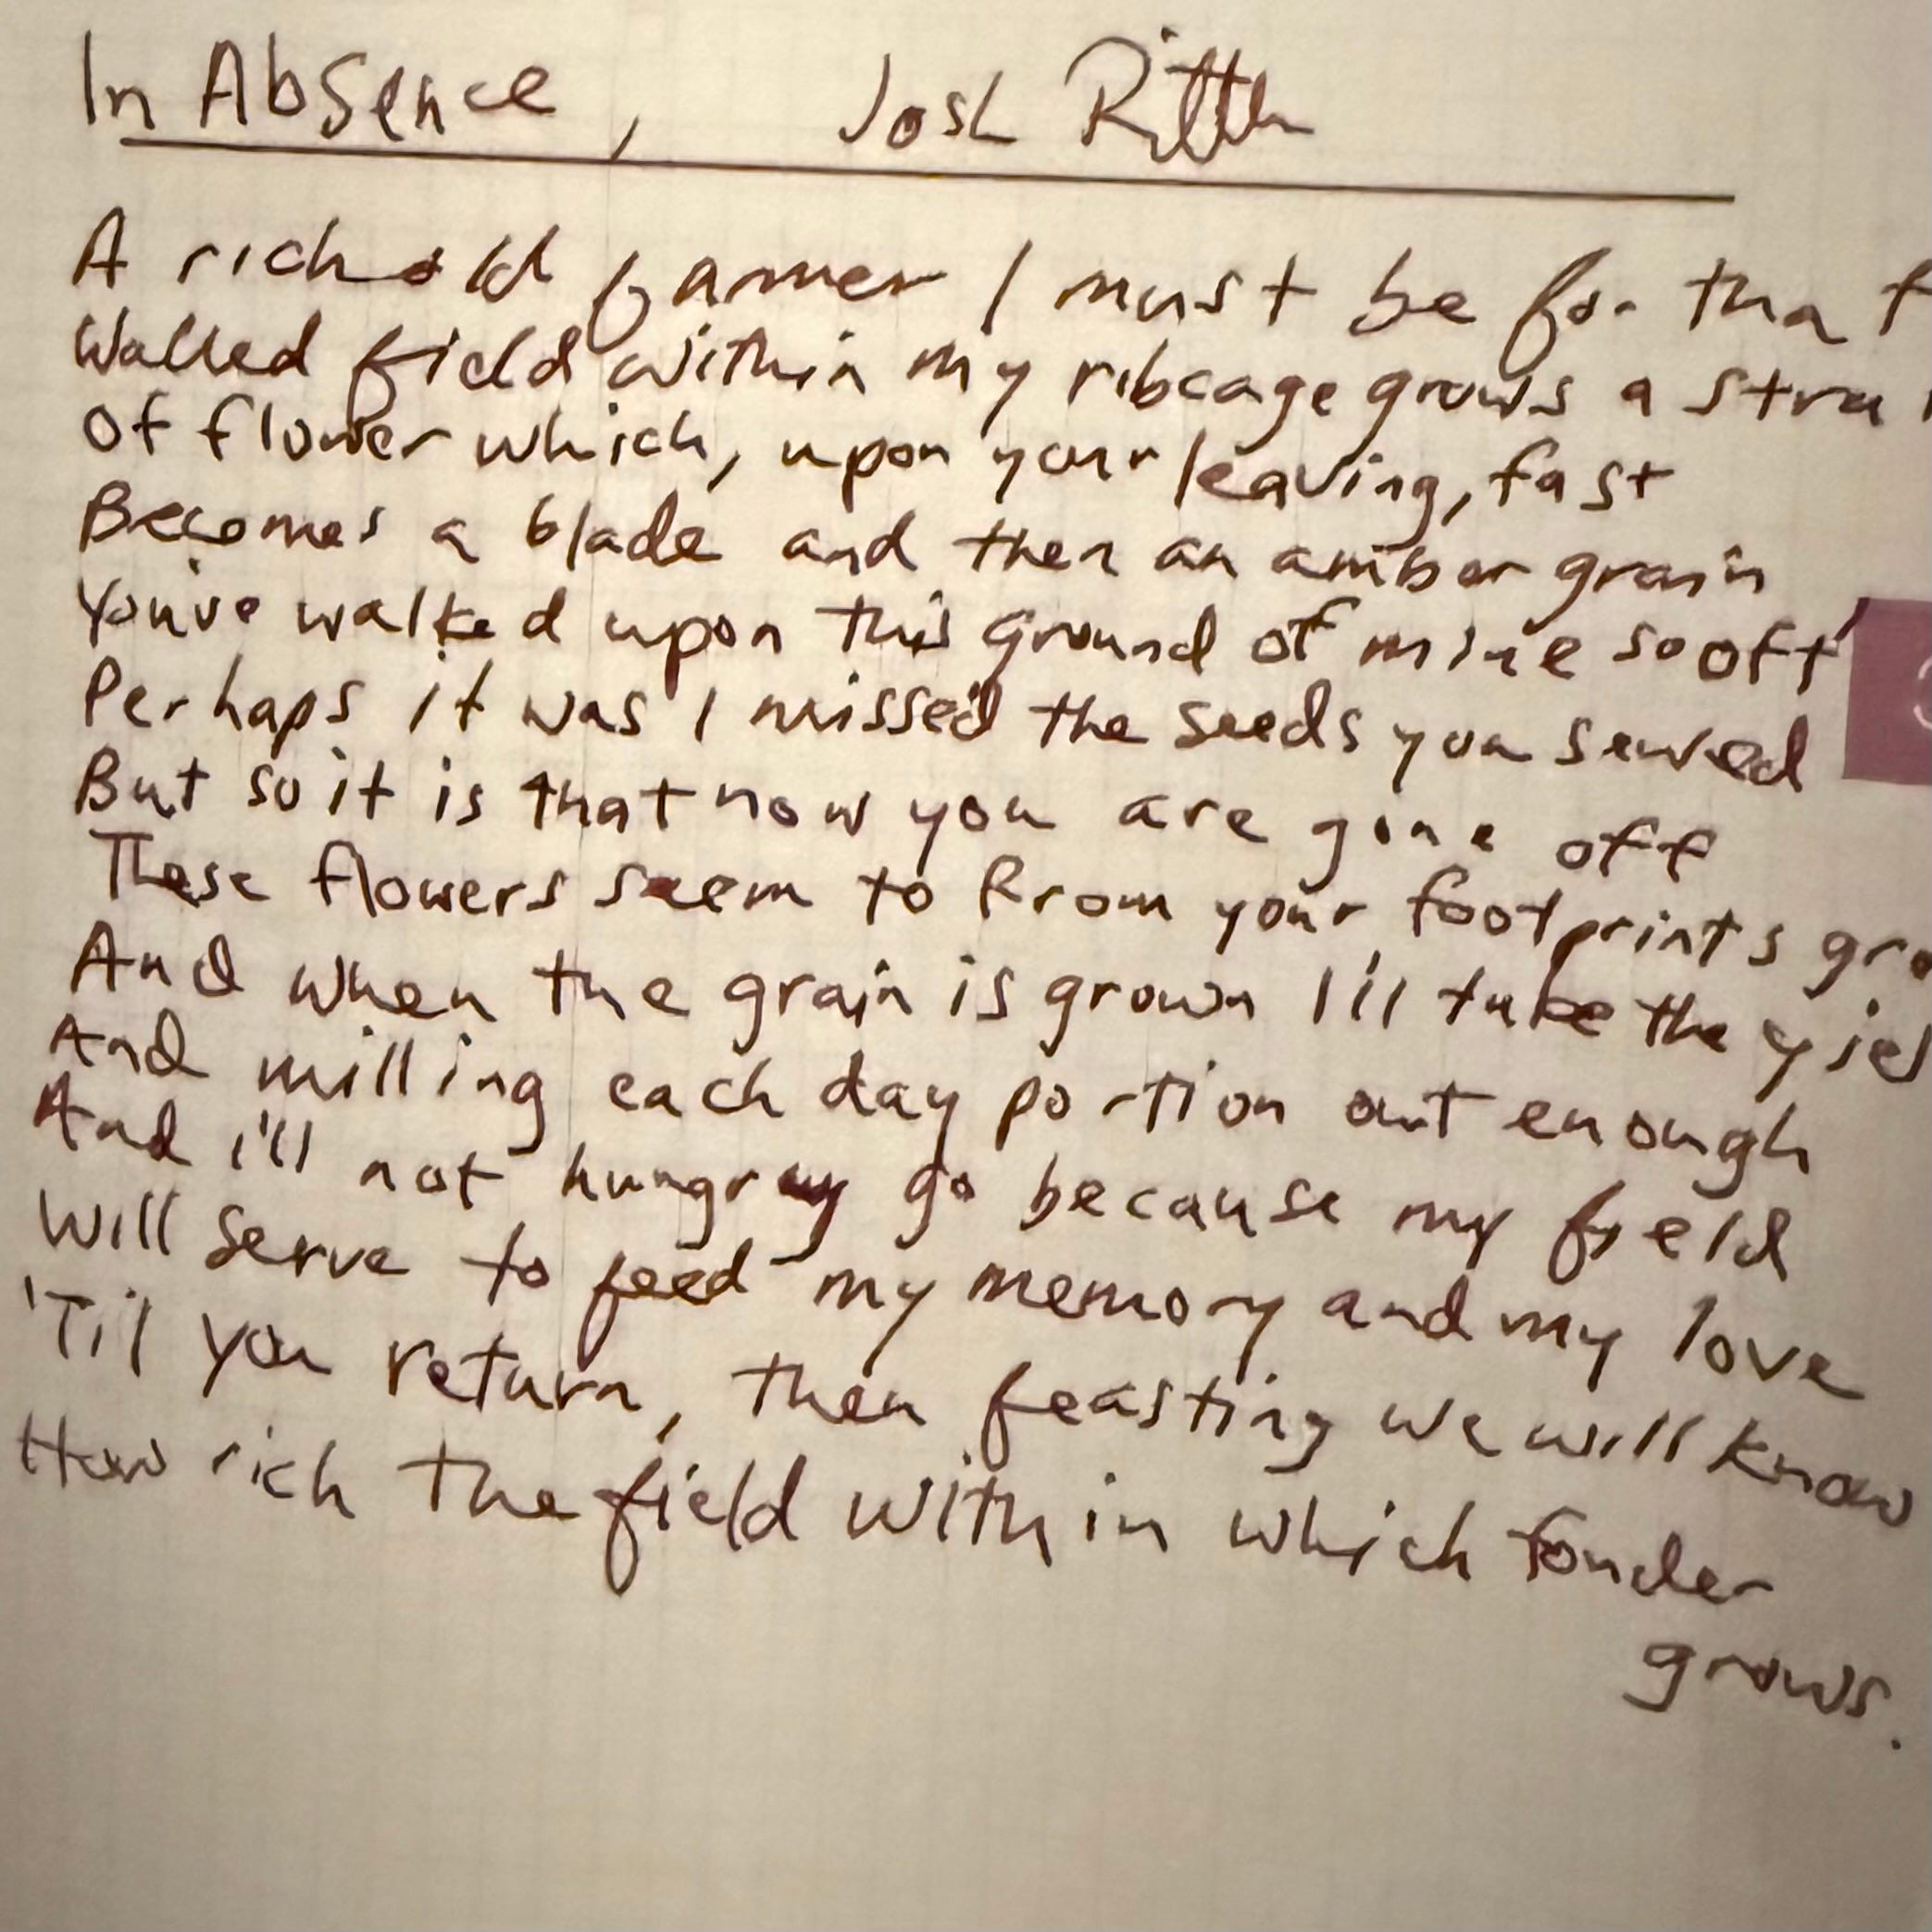 In Absence, Josh Ritter
A rich old farmer I must be for that
Walled field within my ribcage grows a strai
Of flower which, upon your leaving, fast
Becomes a blade and then an amber grain
You've walked upon this ground of mine so oft'
Perhaps it was I missed the seeds you sewed
But so it is that now you are gone off
These flowers seem to from your footprints gro
And when the grain is grown I'll take the yiel
And milling each day portion out enough
And i'll not hungry go because my field
Will serve to feed my memory and my love
'Til you return, then feasting we will know
How rich the field within which fonder
grows.